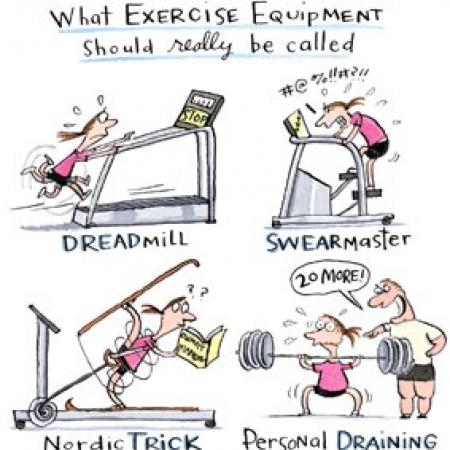 What EXERCISE EQUIPMENT
Should really be called
STOP
#@%!!#?!!
DREADmiLL
SWEARmaster
? ?
20 MORE!
NordicTRiCK
Personal DRAiNiNG